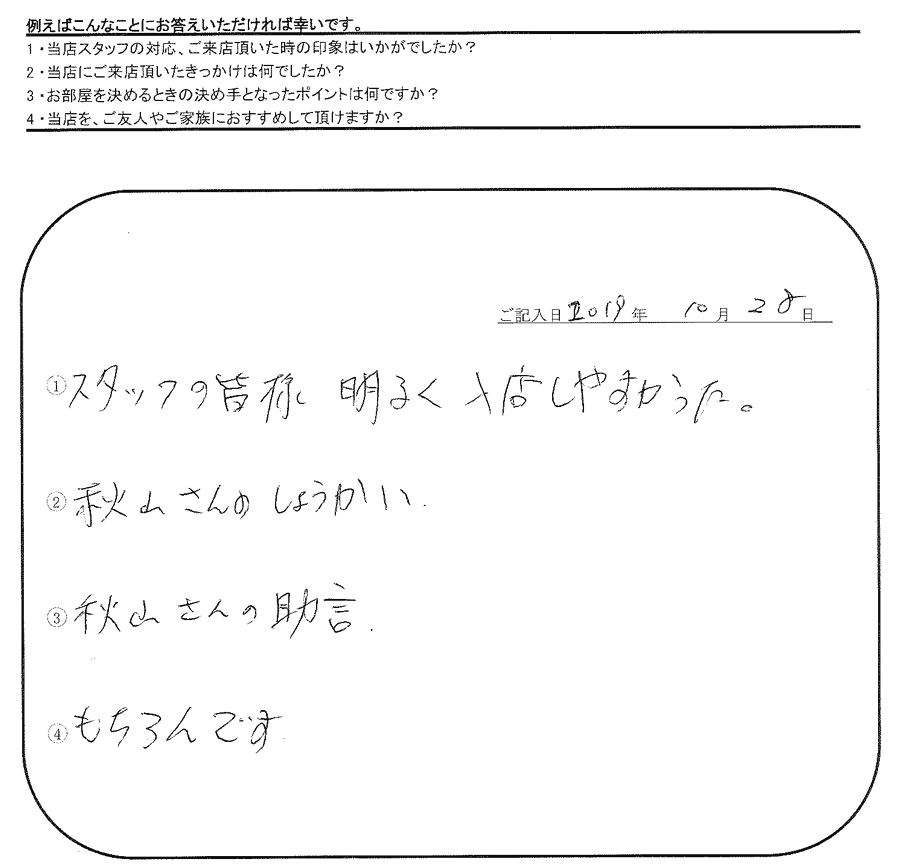 例えばこんなことにお答えいただければ幸いです。
1・当店スタッフの対応、ご来店頂いた時の印象はいかがでしたか？
2・当店にご来店頂いたきっかけは何でしたか？
3・お部屋を決めるときの決め手となったポイントは何ですか？
4・当店を、ご友人やご家族におすすめして頂けますか？
ご記入日 2019年 10月 28日
①スタッフの皆様 明るく 入店しやすかった。
②秋山さんのしょうかい.
③秋山さんの助言.
④もちろんです